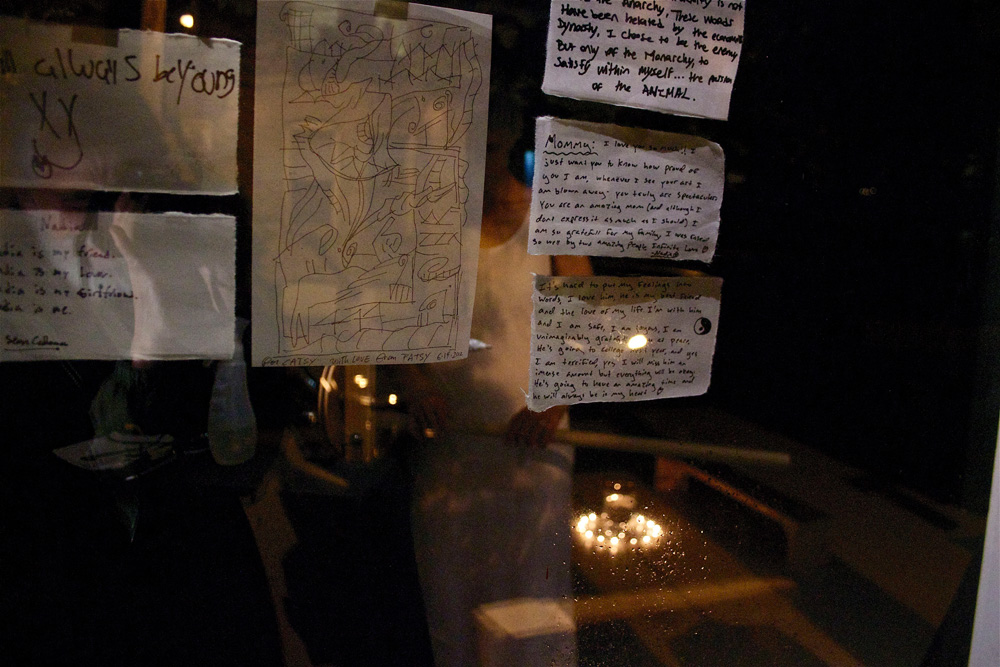 always be young
Nadia
dia is my friend.
dia is my Lover.
dia is my Girlfriend.
dia is me.
with LOVE from PATSY
is not
the anarchy, These words
Have been helated by the economic
Dynasty, I chose to be the enemy
But only of the Monarchy, to
Satisfy within myself... the passion
of the ANIMAL.
Momma: I love you so much, I
just want you to know how proud of
you I am, whenever I see your art I
am blown away- you truly are spectacular.
You are an amazing mom (and although I
dont express it as much as I should) I
am so gratefull for my family, I was raised
so well by two amazing people Infinity Love
It's hard to put my feelings into
words, I love him he is my best friend
and the love of my life I'm with him
and I am safe, I am loyal, I am
unimaginably gratefull at peace,
He's going to college next year, and yes
I am terrified, yes I will miss him an
imense amount but everything will be okay.
He's going to have an amazing time and
he will always be in my heart